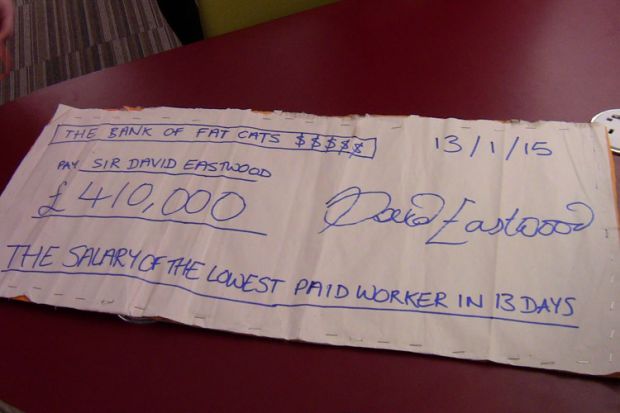 THE BANK OF FAT CATS $$$$$
13/1/15
PAY SIR DAVID EASTWOOD
£410,000
David Eastwood
THE SALARY OF THE LOWEST PAID WORKER IN 13 DAYS